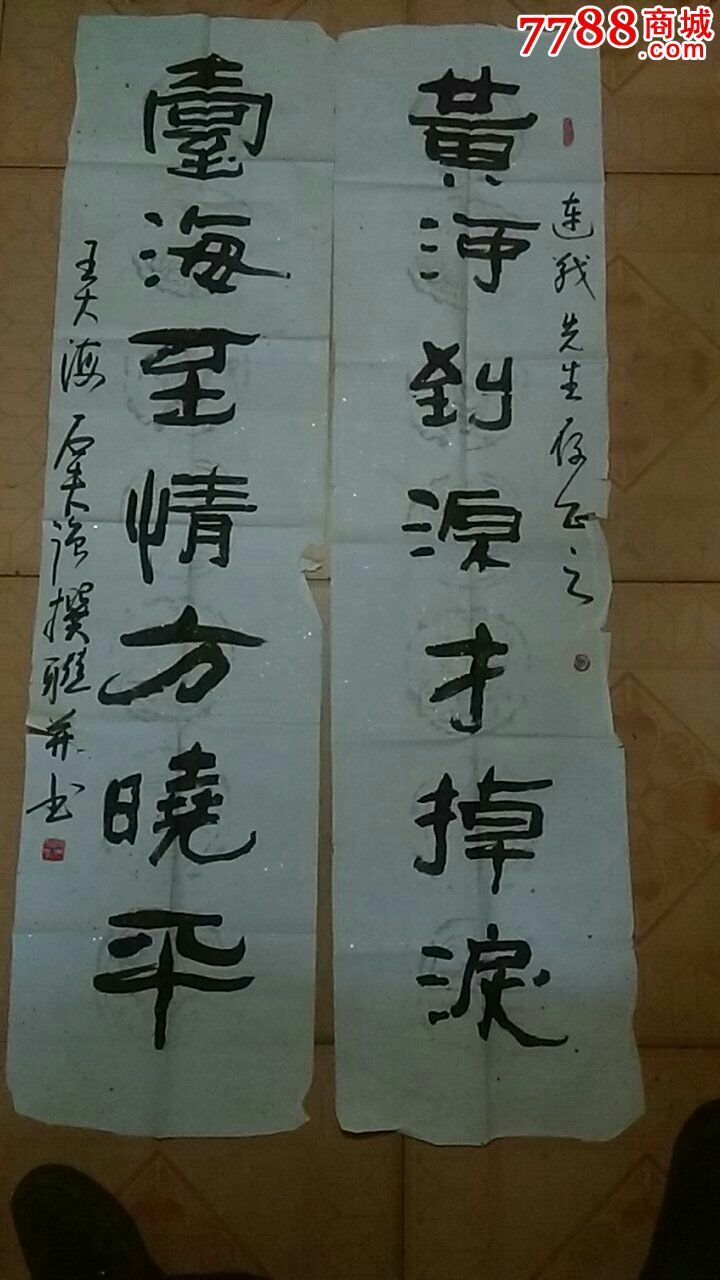 7788商城
.com
連戰先生存正之
黃河到源才掉淚
臺海至情方曉平
王大海 撰聯并书